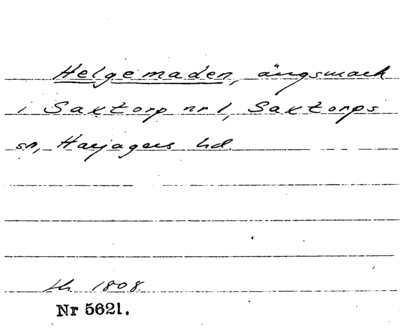 Helgemaden, ängsmark
i Saxtorp nr 1, Saxtorps
sn, Harjagers hd.
1808
Nr 5621.